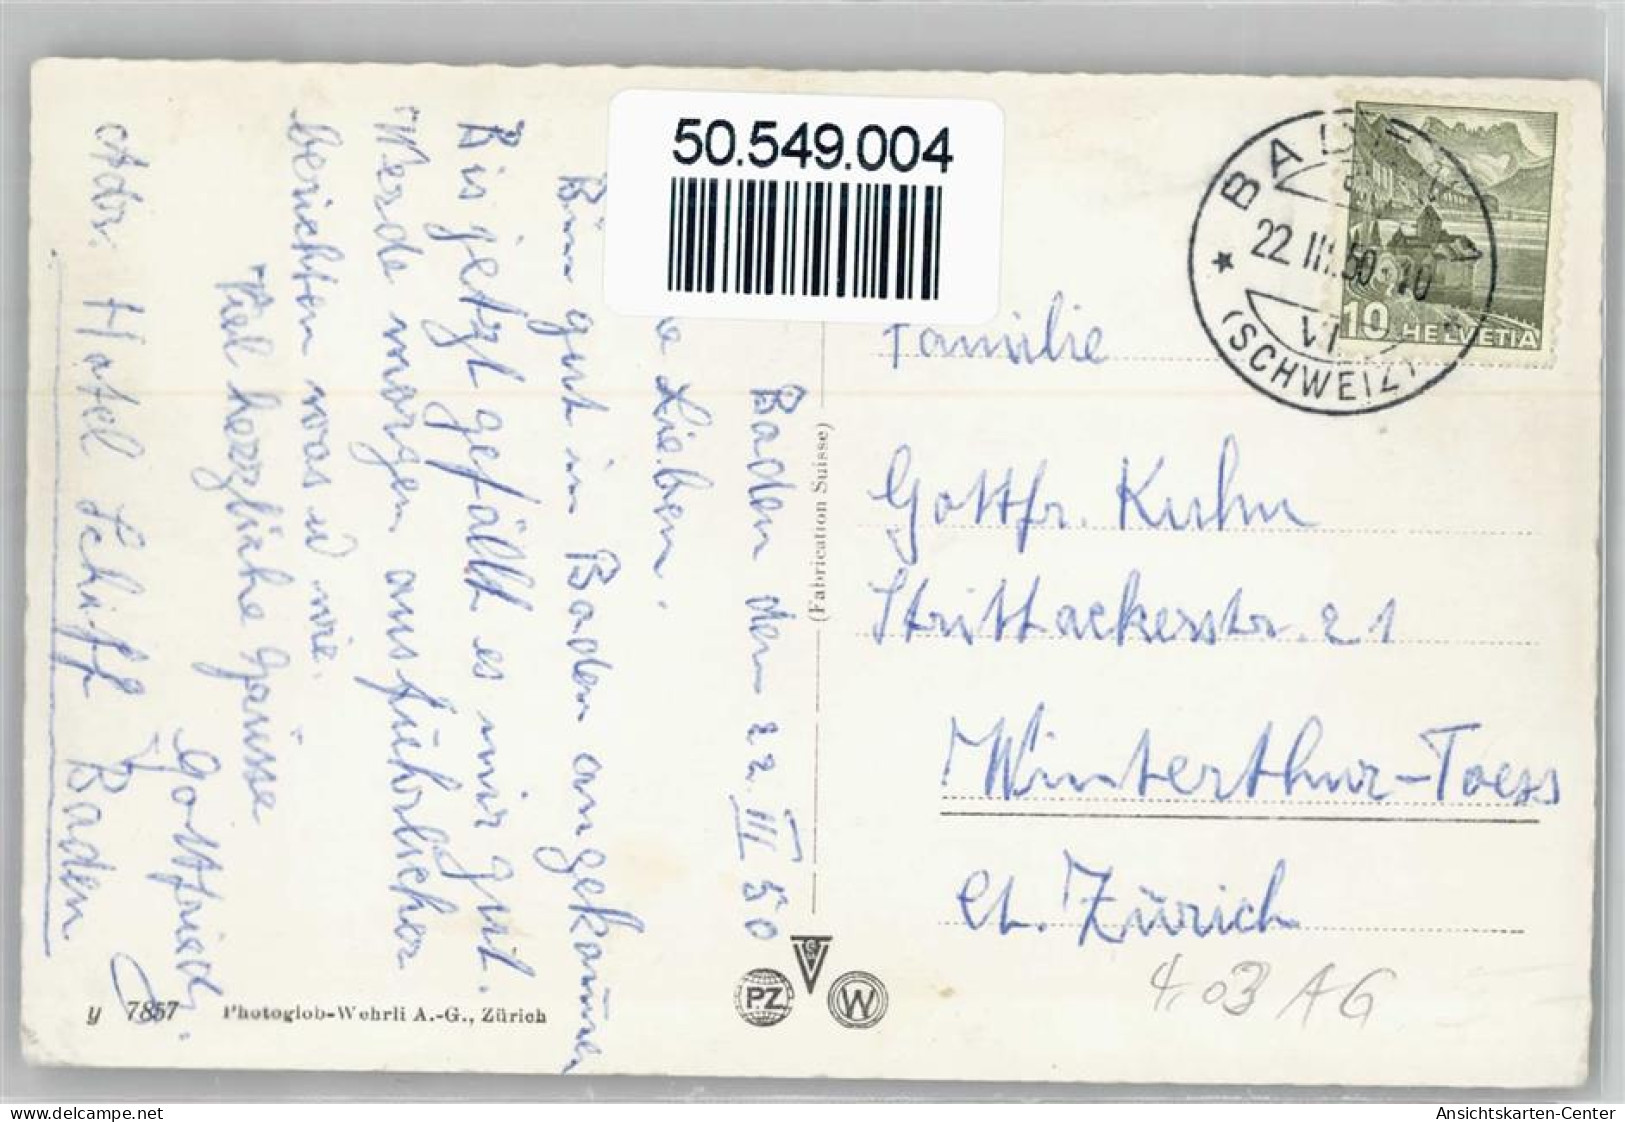 50.549.004
BADEN
22.III.50.-10
VI
(SCHWEIZ)
10 HELVETIA
Baden den 22.III 50
Lieben.
Bin gut in Baden angekommen
Bis jetzt gefällt es mir gut.
Werde morgen ausführlicher
berichten was u wie.
Viel herzliche Grüsse
Gottfried.
Adr. Hotel Schiff Baden
Familie
Gottfr. Kuhn
Strittackerstr. 21
Winterthur-Toess
Ct. Zürich
4.03 AG
(Fabrication Suisse)
PZ
W
y 7857 Photoglob-Wehrli A.-G., Zürich
www.delcampe.net
Ansichtskarten-Center